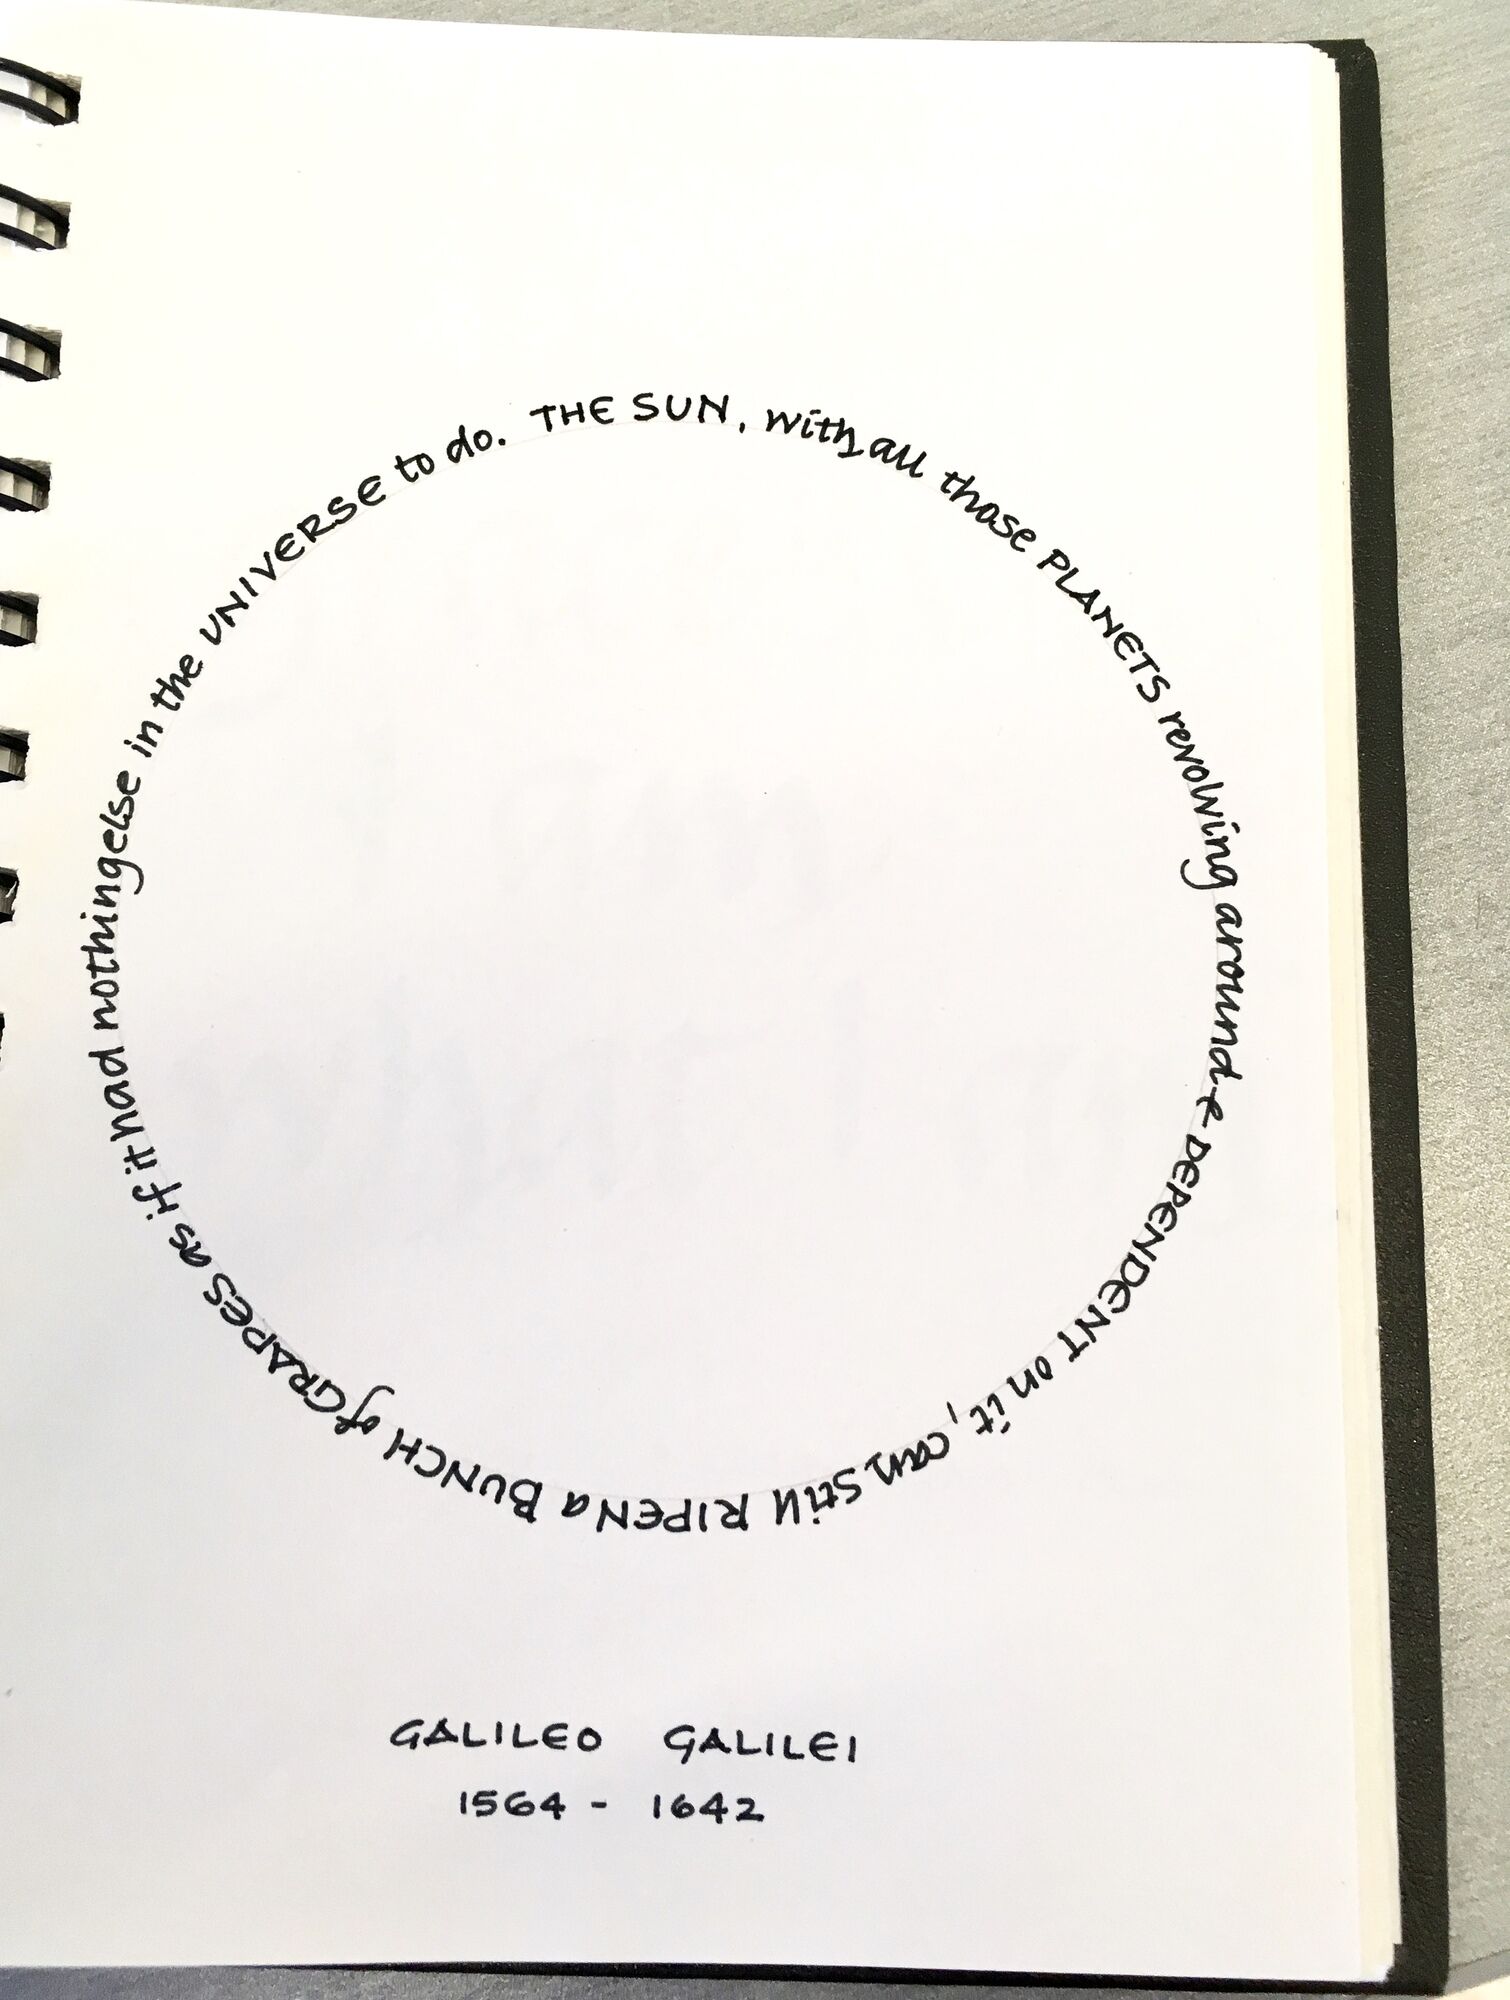 THE SUN, with all those PLANETS revolving around & DEPENDENT on it, can still RIPEN a BUNCH of GRAPES as if it had nothing else in the UNIVERSE to do.
GALILEO GALILEI
1564 - 1642